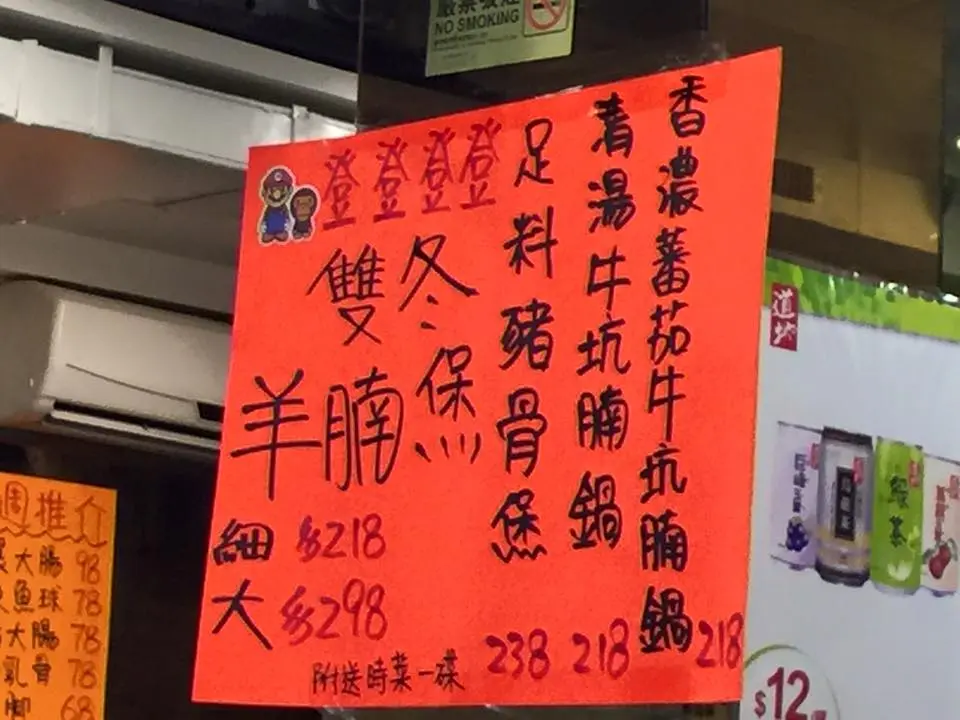 嚴禁吸煙
NO SMOKING
香濃蕃茄牛坑腩鍋 218
清湯牛坑腩鍋 218
足料豬骨煲 238
登登登登
雙冬
羊腩煲
細 $218
大 $298
附送時菜一碟
週推介
大腸 98
魚球 78
大腸 78
乳骨 78
脚 68
道地
綠茶
$12